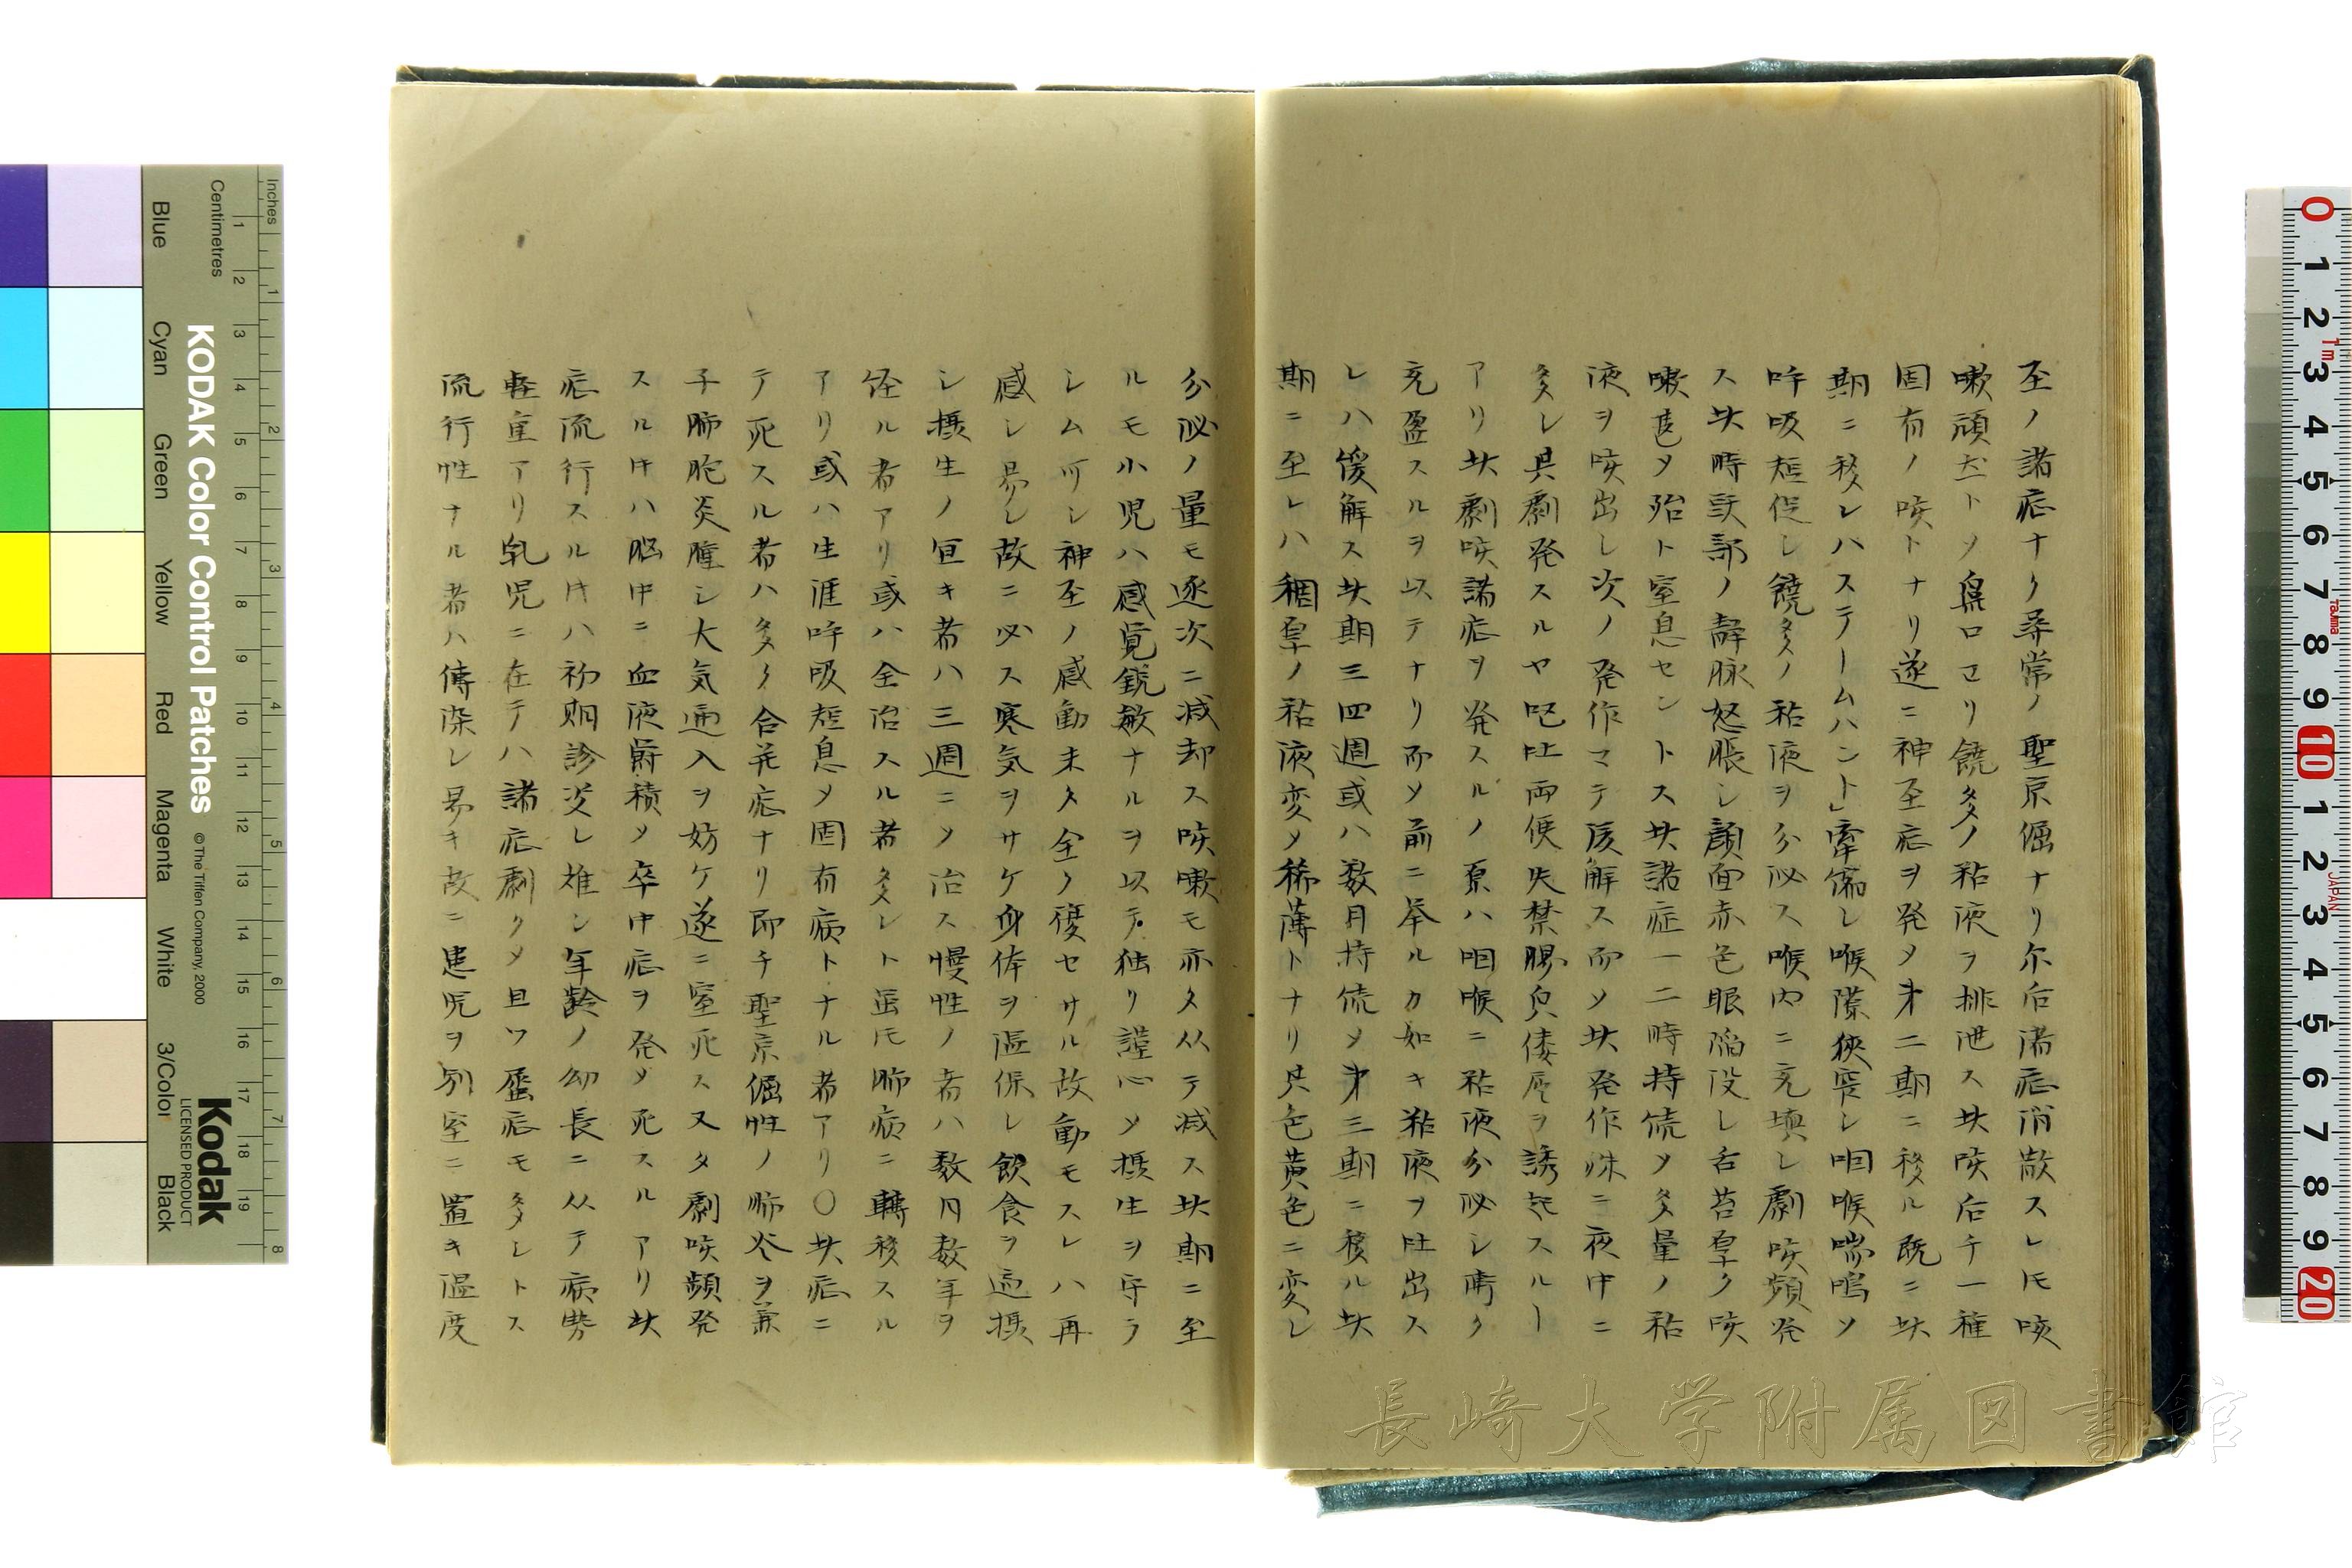 至ノ諸症ナク尋常ノ聖京倔ナリ尓后諸症消散スレ𪜈咳
嗽頑固トノ鼻口ヨリ饒多ノ粘液ヲ排泄ス此咳后チ一種
固有ノ咳トナリ遂ニ神至症ヲ発メ第二期ニ移ル既ニ此
期ニ移レハステームハント」牽縮シ喉隙狭窄シ咽喉喘鳴ソ
呼吸短促シ饒多ノ粘液ヲ分泌ス喉内ニ充填シ劇咳頻発
ス此時頭部ノ静脉怒脹シ顔面赤色眼陥没シ舌苔厚ク咳
嗽甚メ殆ト窒息セントス此諸症一二時持続メ多量ノ粘
液ヲ咳出シ次ノ発作マテ緩解ス而ソ此発作殊ニ夜中ニ
多シ其劇発スルヤ吐両便失禁腸兵倭尼ヲ誘起スルー
アリ此劇咳諸症ヲ発スルノ原ハ咽喉ニ粘液分泌シ
充盈スルヲ以テナリ而ソ前ニ挙ルカ如キ粘液ヲ吐出ス
レハ緩解ス此期三四週或ハ数月持続メ第三期ニ移ル此
期ニ至レハ稠厚ノ粘液変メ稀薄トナリ其色黄色ニ変シ
分泌ノ量モ逐次ニ減却ス咳嗽モ亦タ从テ減ス此期ニ至
ルモ小児ハ感覚鋭敏ナルヲ以テ独リ謹心ソ摂生ヲ守ラ
シム可シ神至ノ感動未タ全ク復セサル故動モスレハ再
感シ易シ故ニ必ス寒気ヲサケ身体ヲ温保シ飲食ヲ適摂
シ摂生ノ宜キ者ハ三週ニソ治ス慢性ノ者ハ数月数年ヲ
経ル者アリ或ハ全治スル者多シト虽𪜈肺病ニ轉移スル
アリ或ハ生涯呼吸短息メ固有病トナル者アリ〇此症ニ
テ死スル者ハ多ク合并症ナリ即チ聖京倔性ノ肺炎ヲ兼
子肺胞炎腫シ大気通入ヲ妨ケ遂ニ窒死ス又タ劇咳頻発
スル片ハ脳中ニ血液欝積ソ卒中症ヲ発メ死スルアリ此
症流行スル片ハ初期診定シ難シ年齢ノ幼長ニ从テ病勢
軽重アリ乳児ニ在テハ諸症劇クメ且ツ蜑症モ多シトス
流行性ナル者ハ傳染シ易キ故ニ患児ヲ別室ニ置キ温度
KODAK Color Control Patches
© The Tiffen Company, 2000
Kodak
LICENSED PRODUCT
Inches
Centimetres
Blue Cyan Green Yellow Red Magenta White 3/Color Black
長崎大学附属図書館